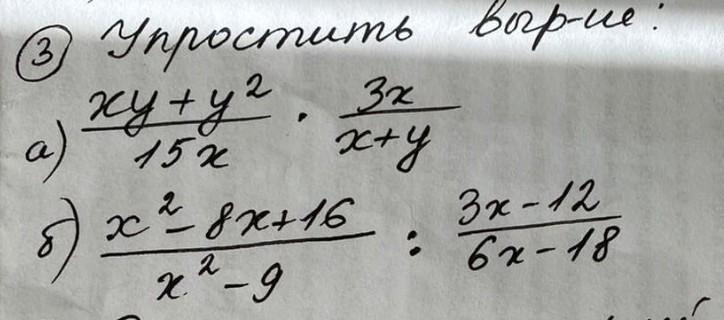 ③ Упростить выр-ие:
а) (xy + y²)/(15x) · (3x)/(x+y)
б) (x² - 8x + 16)/(x² - 9) : (3x - 12)/(6x - 18)